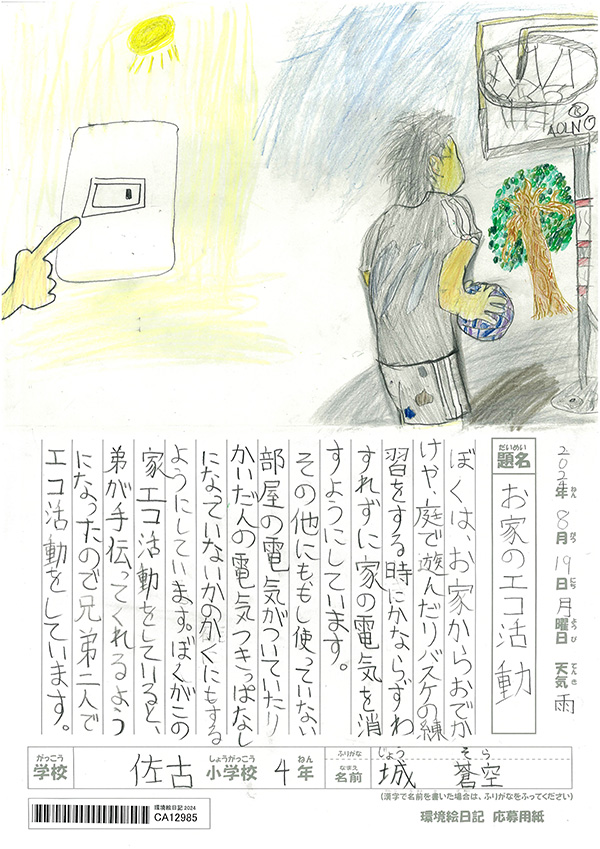 AOLNO
2024年ねん8月がつ19日にち月曜日ようび 天気てんき雨
題名だいめい お家のエコ活動
ぼくは、お家からおでか
けや、庭で遊んだりバスケの練
習をする時にかならずわ
すれずに家の電気を消
すようにしています。
その他にも、もし使っていない
部屋の電気がついていたり
かいだんの電気つきっぱなし
になっていないかのかくにもする
ようにしています。ぼくがこの
家エコ活動をしていると、
弟が手伝ってくれるよう
になったので兄弟二人で
エコ活動をしています。
学校がっこう 佐古小学校しょうがっこう 4年ねん ふりがな じょう そら
名前なまえ 城 蒼空
(漢字で名前を書いた場合は、ふりがなをふってください)
環境絵日記 2024
CA12985
環境絵日記 応募用紙